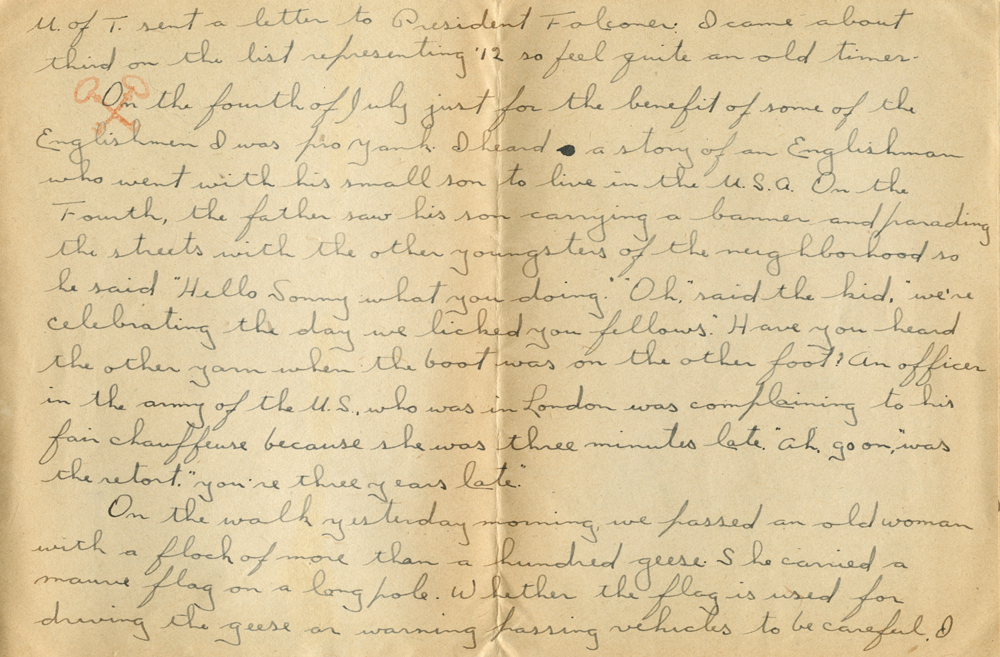 U. of T. sent a letter to President Falconer. I came about
third on the list representing '12 so feel quite an old timer.
On the fourth of July just for the benefit of some of the
Englishmen I was pro Yank. I heard a story of an Englishman
who went with his small son to live in the U.S.A. On the
Fourth, the father saw his son carrying a banner and parading
the streets with the other youngsters of the neighborhood so
he said "Hello Sonny what you doing." "Oh," said the kid, "we're
celebrating the day we licked you fellows." Have you heard
the other yarn when the boot was on the other foot? An officer
in the army of the U.S., who was in London was complaining to his
fair chauffeuse because she was three minutes late. "Ah, go on," was
the retort. "you're three years late."
On the walk yesterday morning, we passed an old woman
with a flock of more than a hundred geese. She carried a
mauve flag on a long pole. Whether the flag is used for
driving the geese or warning passing vehicles to be careful, I